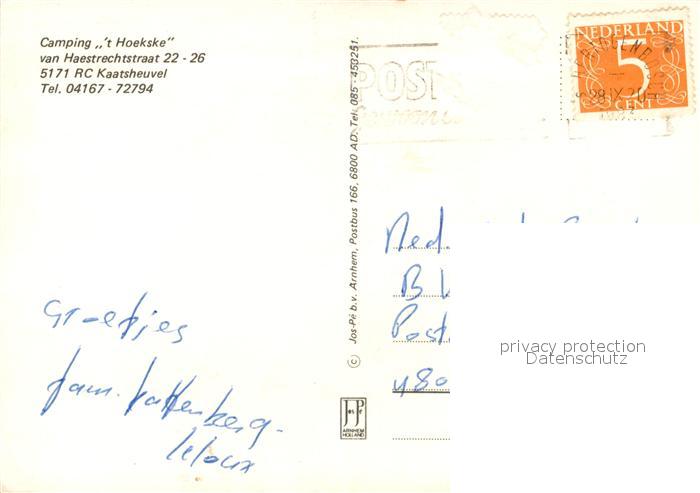 Camping ,,'t Hoekske"
van Haestrechtstraat 22 - 26
5171 RC Kaatsheuvel
Tel. 04167 - 72794
Groetjes
fam.
© Jos-Pé b.v. Arnhem, Postbus 166, 6800 AD. Tel. 085 - 453251.
JosPé
ARNHEM
HOLLAND
NEDERLAND
5
CENT
POST
28.IX.
Ned
B
Post
480
privacy protection
Datenschutz